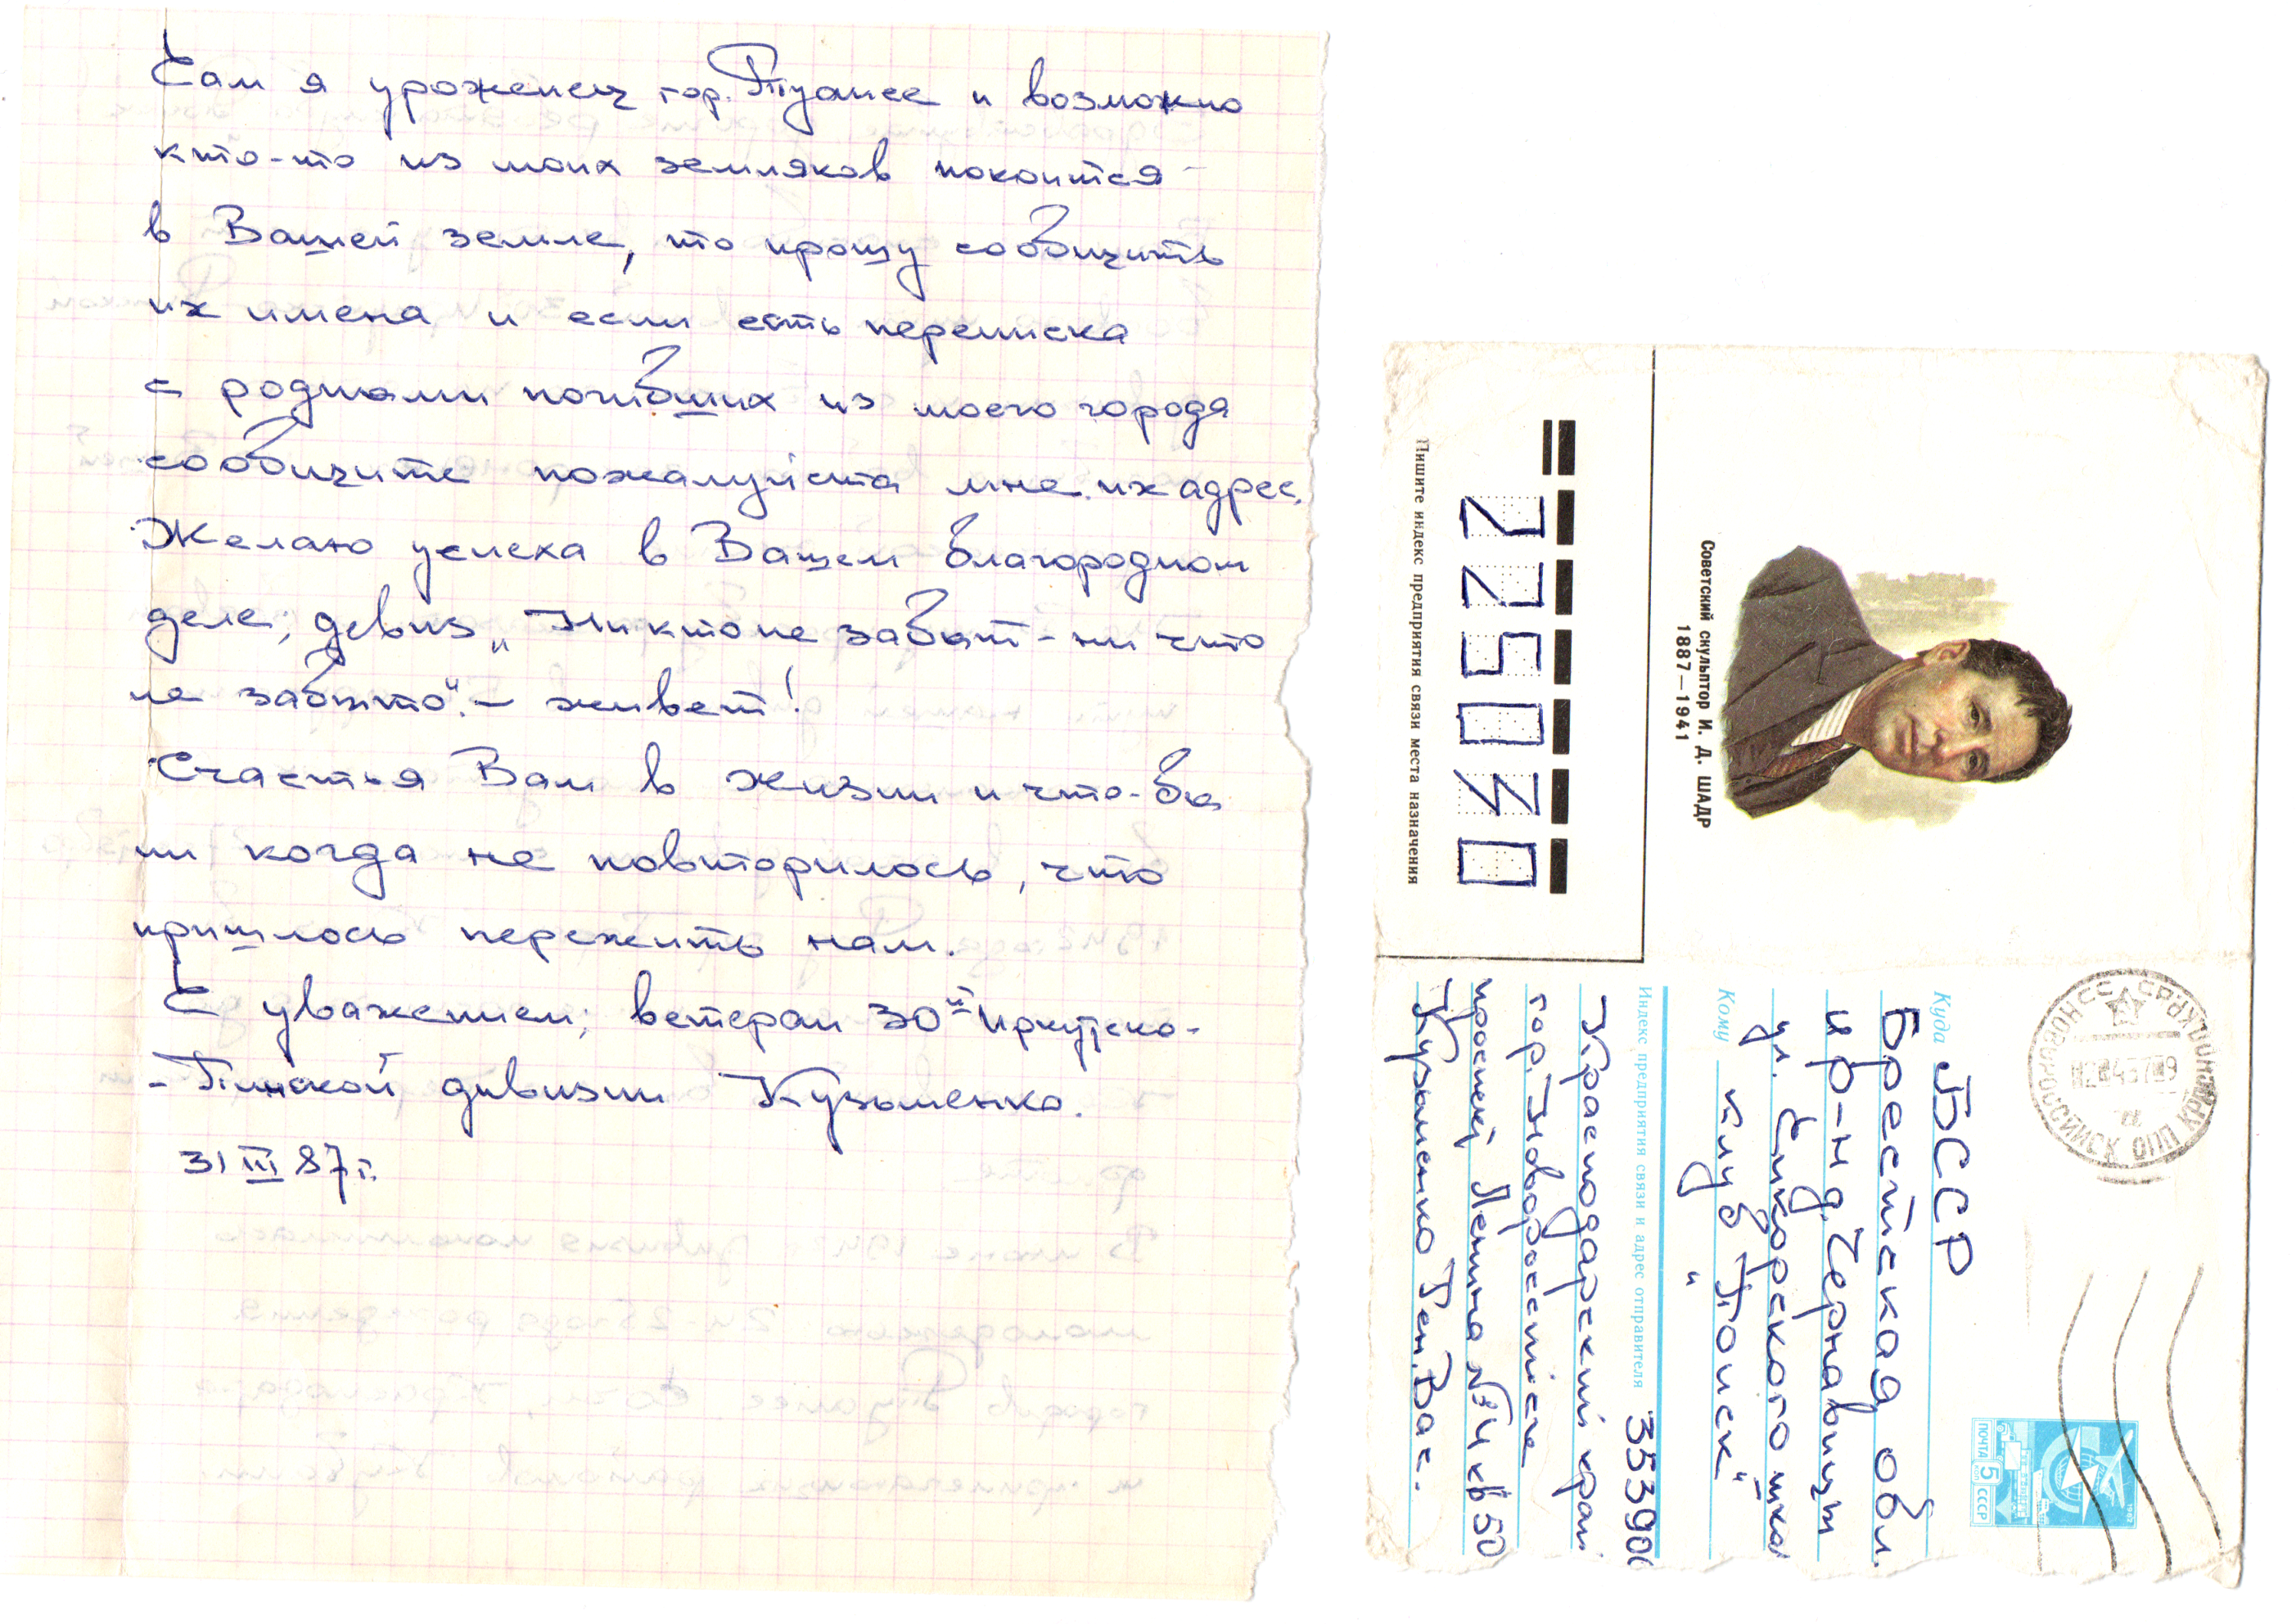 Сам я уроженец гор. Туапсе и возможно
кто-то из моих земляков покоится
в Вашей земле, то прошу сообщить
их имена и если есть переписка
с родными погибших из моего города
сообщите пожалуйста мне их адрес.
Желаю успеха в Вашем благородном
деле; девиз „Ни кто не забыт - ни что
не забыто“. - живет!
Счастья Вам в жизни и что-бы
ни когда не повторилось, что
пришлось пережить нам.
С уважением; ветеран 30ой Иркутско-
-Пинской дивизии Кузьменко.
31 III 87г.
Советский скульптор И. Д. ШАДР
1887—1941
225030
Пишите индекс предприятия связи места назначения
НОВОРОССИЙСК ОПП КРАСНОД
ПОЧТА 5 коп СССР
Куда БССР
Брестская обл.
р-н д. Чернавчицы
ул. Сикорского
Кому клуб „Поиск“
Индекс предприятия связи и адрес отправителя 353900
Краснодарский край
гор. Новороссийск
проспект Ленина № 4 кв 50
Кузьменко Ген. Вас.